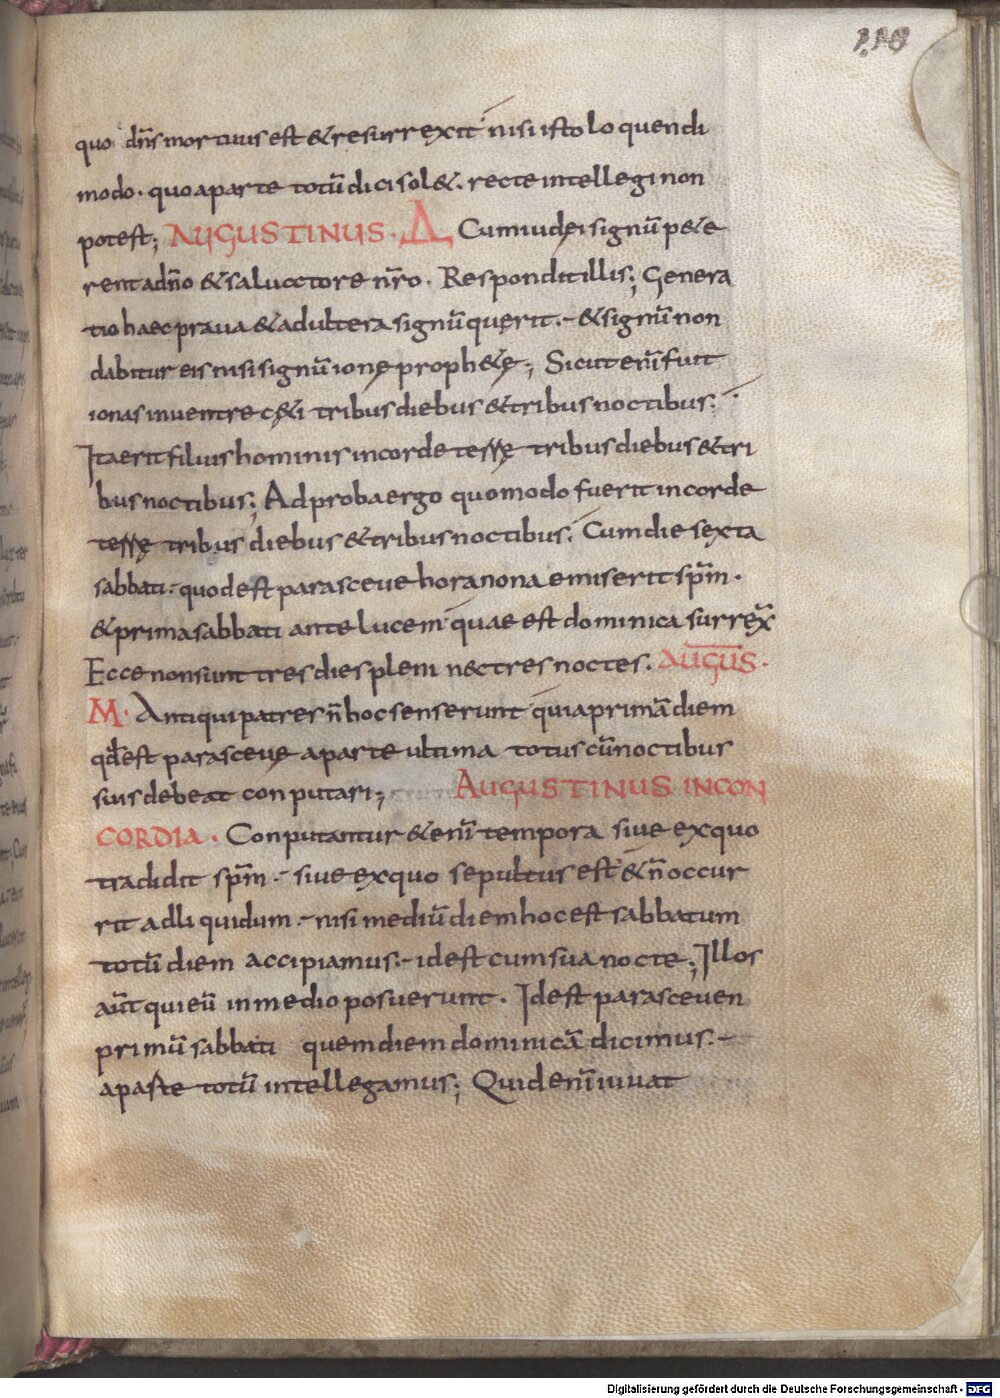 118
quo dn̄s mortuus est & resurrexit nisi isto loquendi
modo · quo a parte totū dici sol& · recte intellegi non
potest; AUGUSTINUS · A Cum iudei signū p&e
rent ad dn̄o & saluatore nr̄o · Respondit illis; Genera
tio haec praua & adultera signū querit · & signū non
dabitur eis nisi signū ionę proph&ę; Sicut enī fuit
ionas in uentre c&i tribus diebus & tribus noctibus.
Ita erit filius hominis in corde terrę tribus diebus & tri
bus noctibus; Ad proba ergo quomodo fuerit in corde
terrę tribus diebus & tribus noctibus. Cum die sexta
sabbati · quod est parasceue hora nona emiserit spm̄ ·
& prima sabbati ante lucem quae est dominica surrex̄
Ecce non sunt tres dies pleni nec tres noctes. AUGUS̄ ·
M · Antiqui patres n̄ hoc senserunt quia primā diem
qd̄ est parasceuę a parte ultima totus cū noctibus
suis debeat conputari; AUGUSTINUS IN CON
CORDIA · Conputantur & enī tempora siue ex quo
tradidit spm̄ · siue ex quo sepultus est & n̄ occur
rit adliquidum · nisi mediū diem hoc est sabbatum
totū diem accipiamus · id est cum sua nocte; Illos
aūt qui eū in medio posuerunt · Id est parasceuen
primū sabbati quem diem dominicā dicimus ·
a parte totū intellegamus; Quid enī iuuat
Digitalisierung gefördert durch die Deutsche Forschungsgemeinschaft - DFG